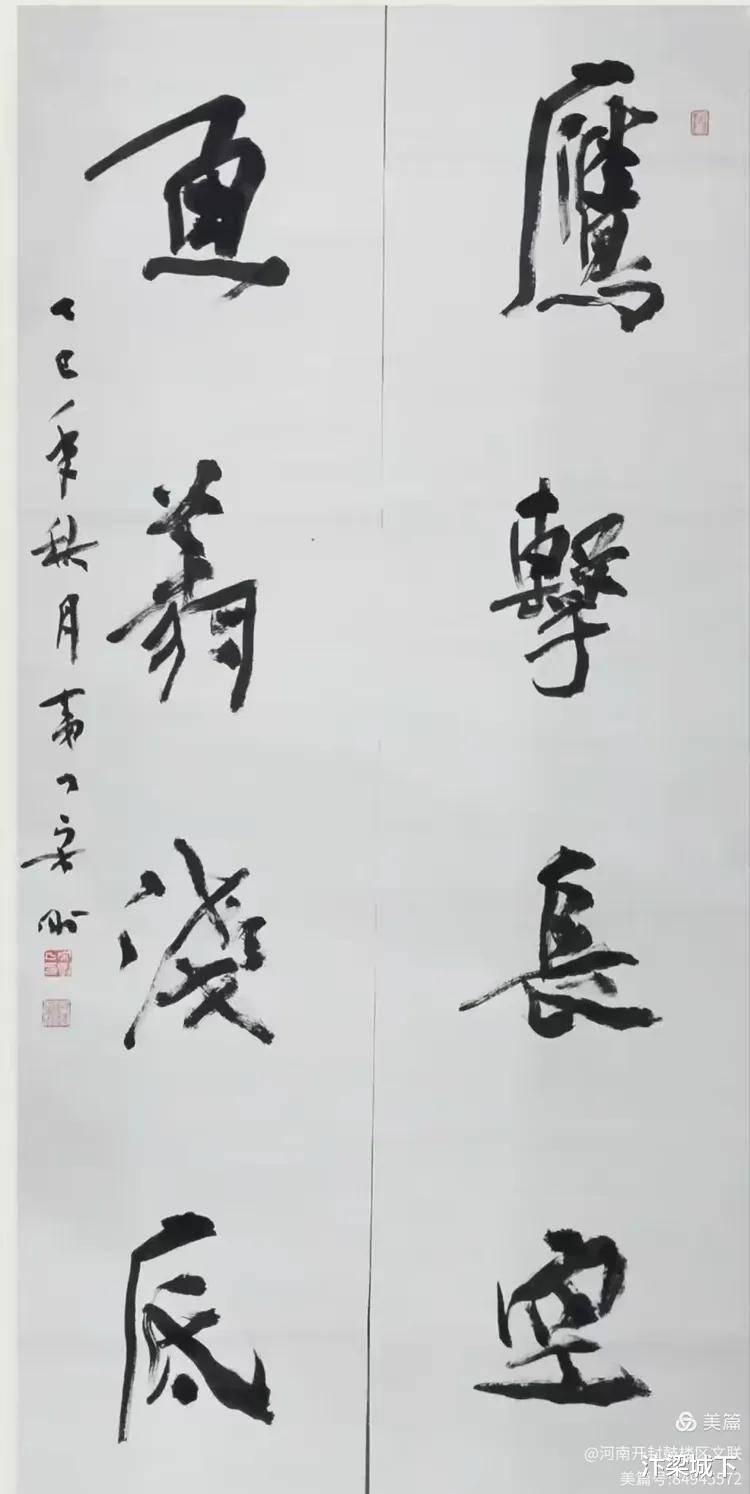 鷹擊長空
魚翦淺底
乙巳年秋月
美篇
@河南开封鼓楼区文联
汴梁城下
美篇号:84943572